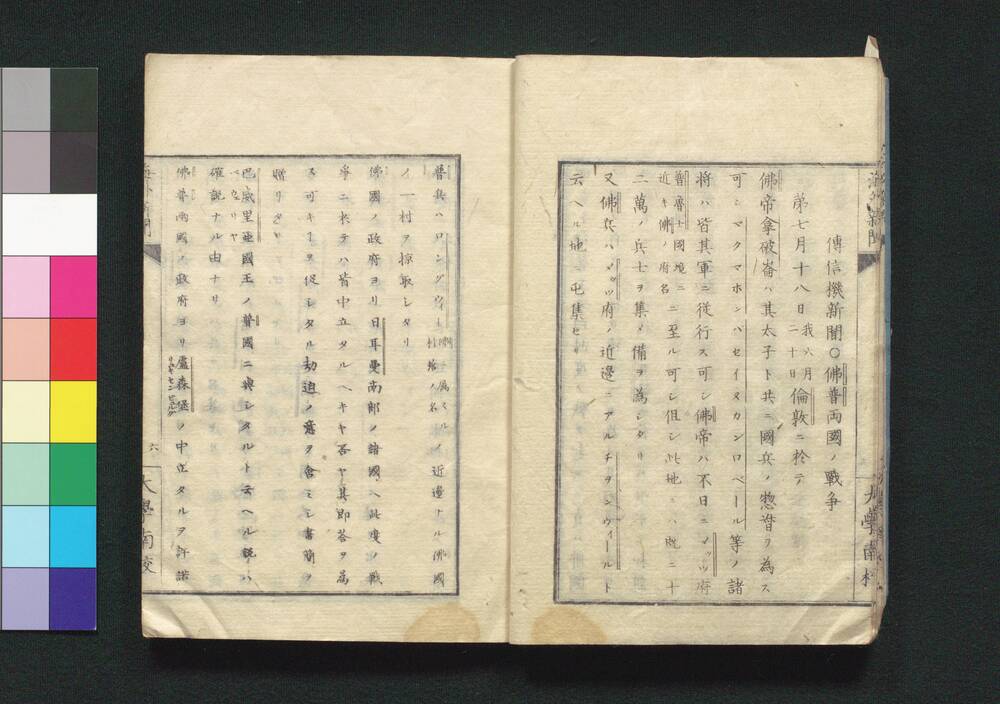 傳信機新聞○佛普両國ノ戰争
第七月十八日我六月二十日倫敦ニ於テ
佛帝拿破崙ハ其太子ト共ニ國兵ノ惣督ヲ為ス
可シマクマホンバセイヌカンロベール等ノ諸
將ハ皆其軍ニ従行ス可シ佛帝ハ不日ニマッツ府
普魯士國境ニ近キ佛ノ府名ニ至ル可シ但シ此地ニハ既ニ十
二萬ノ兵士ヲ集メ備ヲ為シタリ
又佛兵ハマッツ府ノ近邊ニアルチヲンウィールト
云ヘル地ニ屯集セリ
普兵ハロングウィー 属スル 村落ノ名 近邊ナル佛國
ノ一村ヲ掠取シタリ
佛國ノ政府ヨリ日耳曼南部ノ諸國ヘ此度ノ戰
爭ニ於テハ皆中立タルヘキヤ否ヤ其即答ヲ為
ス可キヿヲ促シタル劫迫ノ意ヲ含ミシ書簡ヲ
贈リタリ
巴威里亜國王ノ普國ニ與シタルト云ヘル説ハ
確説ナル由ナリ
佛普両國ノ政府ヨリ盧森堡ノ中立タルヲ許諾
海外新聞
六
大學南校